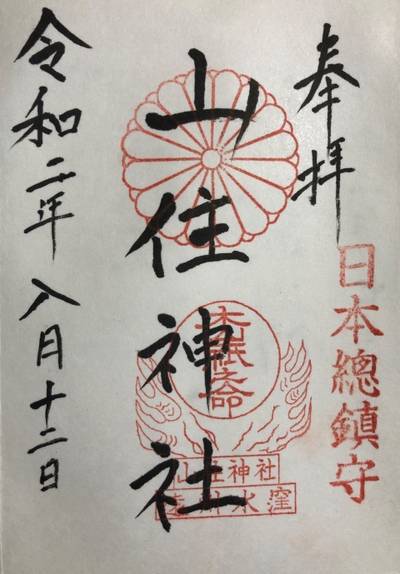 奉拝
日本總鎮守
山住神社
山住神社
水窪
令和二年八月十二日